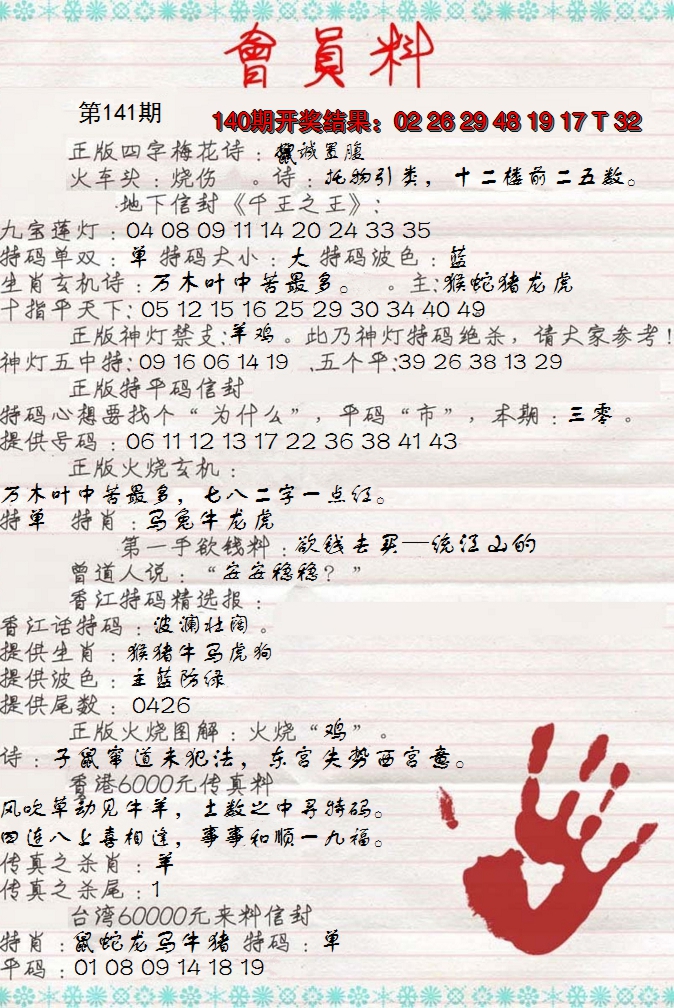 會員料
第141期
140期开奖结果：02 26 29 48 19 17 T 32
正版四字梅花诗：鼠诚置腹
火车头：烧伤 。诗：托物引类，十二楼前二五数。
地下信封《千王之王》：
九宝莲灯：04 08 09 11 14 20 24 33 35
特码单双：单 特码大小：大 特码波色：蓝
生肖玄机诗：万木叶中苦最多。 。主：猴蛇猪龙虎
十指平天下：05 12 15 16 25 29 30 34 40 49
正版神灯禁支：羊鸡。此乃神灯特码绝杀，请大家参考！
神灯五中特：09 16 06 14 19 .五个平：39 26 38 13 29
正版特平码信封
特码心想要找个“为什么”，平码“市”，本期：三零。
提供号码：06 11 12 13 17 22 36 38 41 43
正版火烧玄机：
万木叶中苦最多，七八二字一点红。
特单 特肖：马兔牛龙虎
第一手欲钱料：欲钱去买一统江山的
曾道人说：“安安稳稳？”
香江特码精选报：
香江话特码：波澜壮阔。
提供生肖：猴猪牛马虎狗
提供波色：主蓝防绿
提供尾数：0426
正版火烧图解：火烧“鸡”。
诗：子鼠窜道未犯法，东宫失势西宫意。
香港6000元传真料
风吹草动见牛羊，土数之中寻特码。
四连八上喜相逢，事事和顺一九福。
传真之杀肖：羊
传真之杀尾：1
台湾60000元来料信封
特肖：鼠蛇龙马牛猪 特码：单
平码：01 08 09 14 18 19